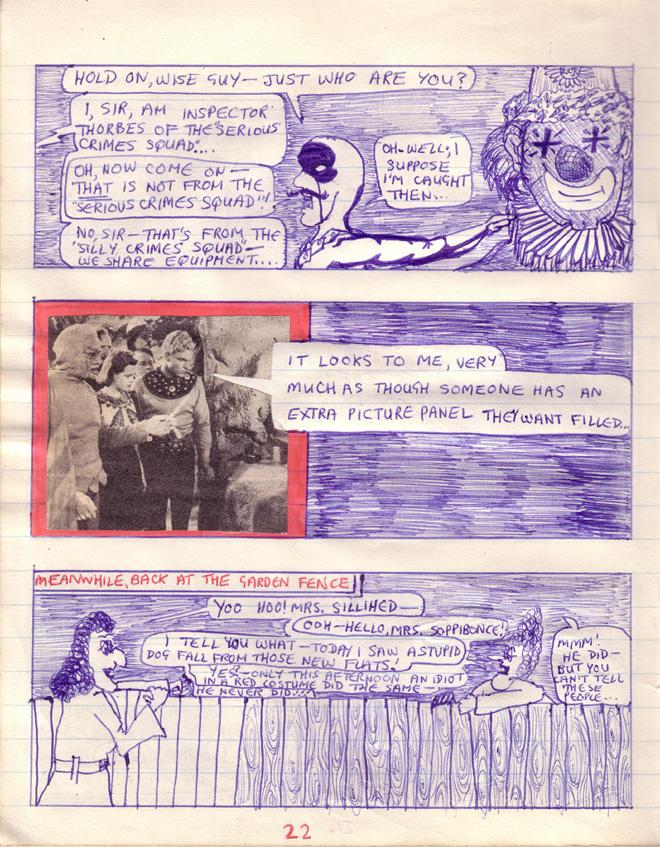 HOLD ON, WISE GUY — JUST WHO ARE YOU?
I, SIR, AM INSPECTOR
THORBES OF THE "SERIOUS
CRIMES SQUAD"....
OH, NOW COME ON —
THAT IS NOT FROM THE
"SERIOUS CRIMES SQUAD"!
NO, SIR — THAT'S FROM THE
"SILLY CRIMES SQUAD" —
WE SHARE EQUIPMENT....
OH-WELL, I
SUPPOSE
I'M CAUGHT
THEN...
IT LOOKS TO ME, VERY
MUCH AS THOUGH SOMEONE HAS AN
EXTRA PICTURE PANEL THEY WANT FILLED...
MEANWHILE, BACK AT THE GARDEN FENCE
YOO HOO! MRS. SILLIHED —
OOH-HELLO, MRS. SOPPIBONCE!
I TELL YOU WHAT — TODAY I SAW A STUPID
DOG FALL FROM THOSE NEW FLATS!
YES - ONLY THIS AFTERNOON AN IDIOT
IN A RED COSTUME DID THE SAME —
HE NEVER DID!!!
MMM!
HE DID —
BUT YOU
CAN'T TELL
THESE
PEOPLE...
22